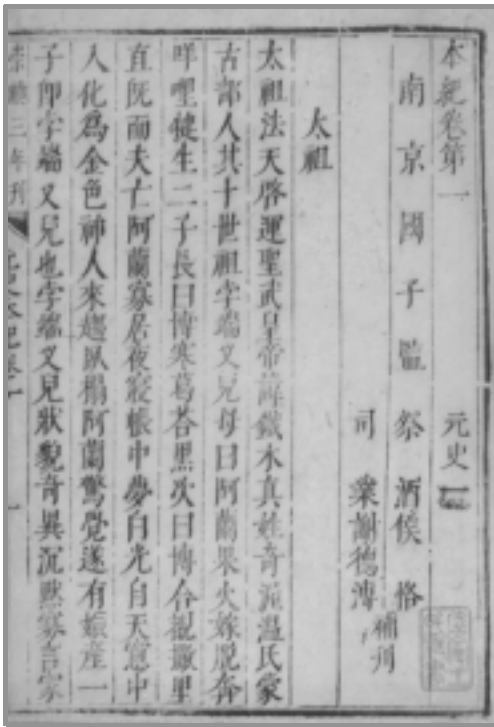 本紀卷第一 元史一
南京國子監祭酒侯恪
司業謝德溥 補刊
太祖
太祖法天啓運聖武皇帝諱鐵木真姓奇渥温氏蒙
古部人其十世祖孛端叉兒母曰阿蘭果火嫁脱奔
咩哩犍生二子長曰博寒葛荅黑次曰博合覩撒里
直既而夫亡阿蘭寡居夜寢帳中夢白光自天窻中
入化爲金色神人來趨臥榻阿蘭驚覺遂有娠產一
子即孛端叉兒也孛端叉兒狀貌奇異沉默寡言家
三年刊 元史本紀卷一 一